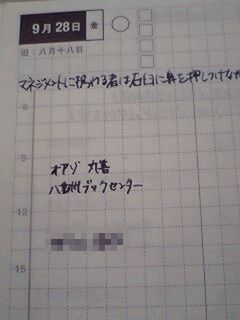 9月28日 金
旧:八月十八日
マネジメントに携わる者は石臼に鼻を押しつけなが
6
9
オアゾ 丸善
八重洲ブックセンター
12
15